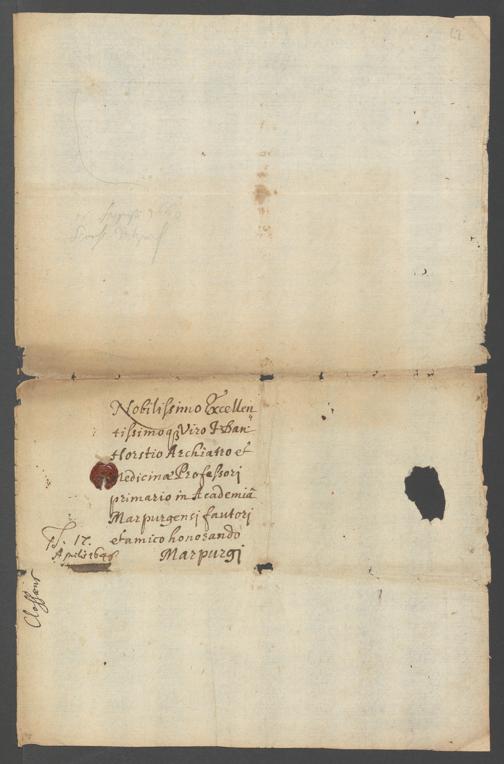 Nobilissimo Excellen
tissimoq3 Viro
Horstio Archiatro et
Medicinæ Professori
primario in Academiâ
Marpurgensi fautori
et amico honorando
Marpurgi
17.
Aprilis